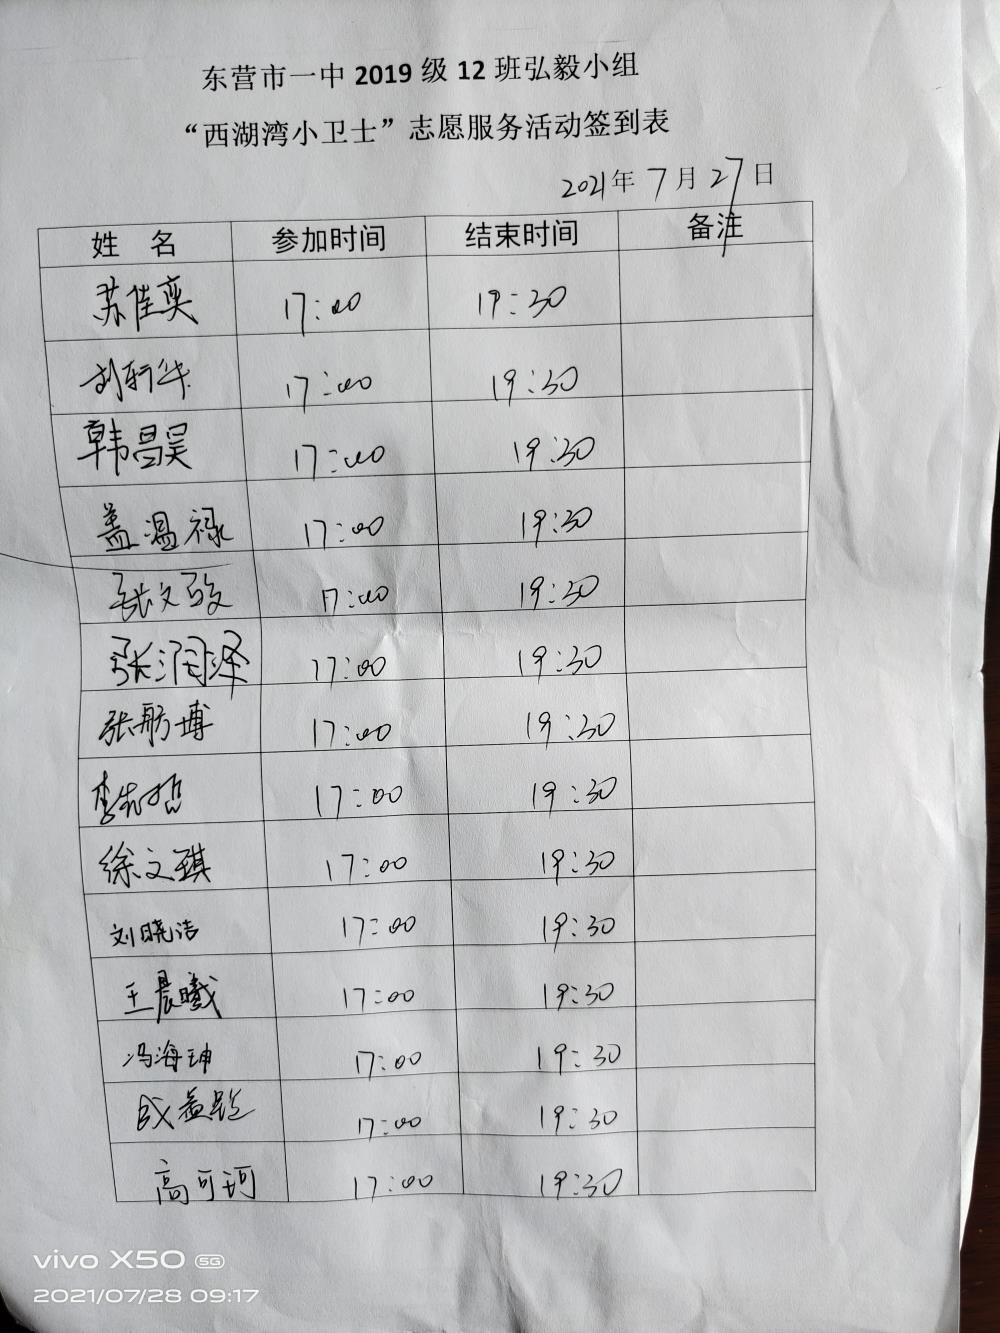 东营市一中 2019 级 12 班弘毅小组
“西湖湾小卫士”志愿服务活动签到表
2021年 7月 27日
姓 名 参加时间 结束时间 备注
苏佳奕 17:00 19:30
刘轩华 17:00 19:30
韩昌昊 17:00 19:30
盖温禄 17:00 19:30
张文 17:00 19:30
张润泽 17:00 19:30
张舫博 17:00 19:30
李 哲 17:00 19:30
徐文琪 17:00 19:30
刘晓洁 17:00 19:30
王晨曦 17:00 19:30
冯海珅 17:00 19:30
17:00 19:30
高可珂 17:00 19:30
vivo X50 5G
2021/07/28 09:17